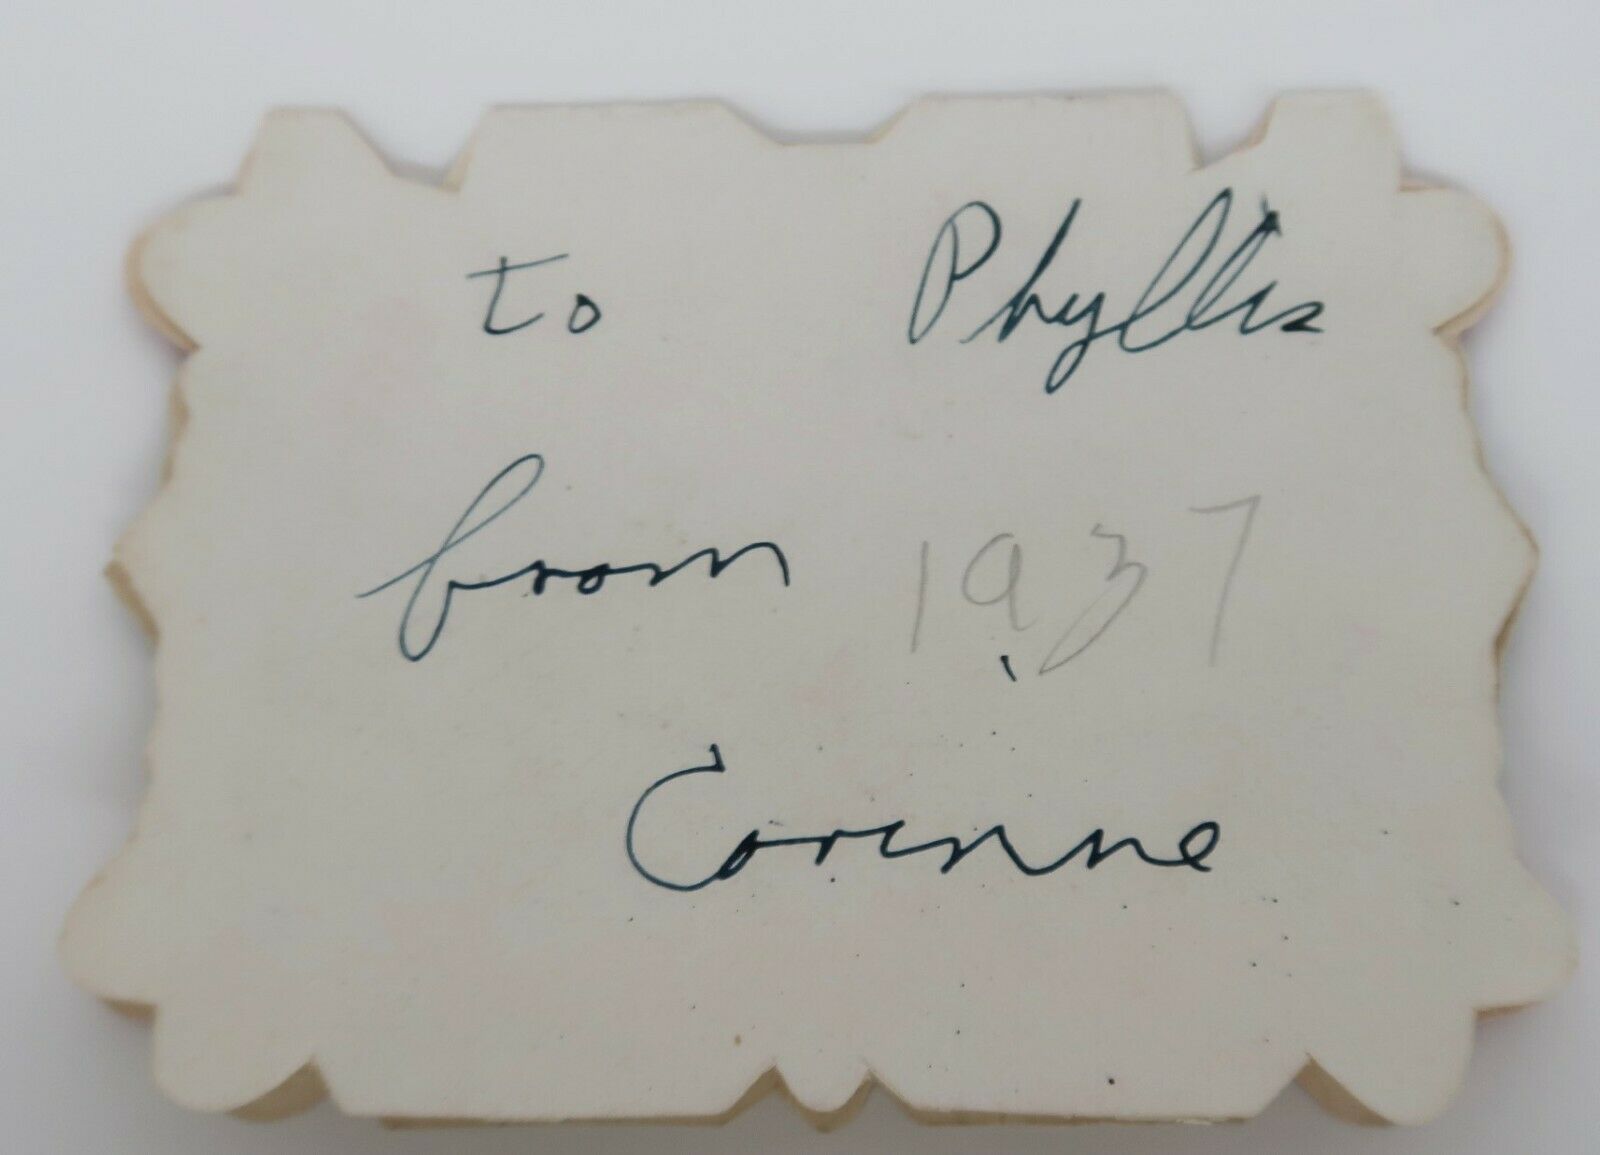 to Phyllis
from 1937
Corinne